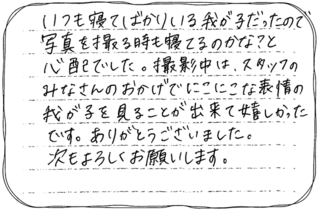 いつも寝てばかりいる我が子だったので
写真を撮る時も寝てるのかな?と
心配でした。撮影中は、スタッフの
みなさんのおかげでにこにこな表情の
我が子を見ることが出来て嬉しかった
です。ありがとうございました。
次もよろしくお願いします。